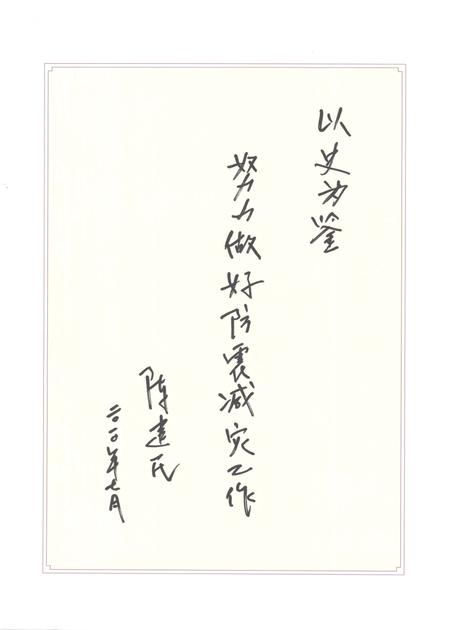 以史为鉴
努力做好防震减灾工作
陈建民
二〇一〇年七月